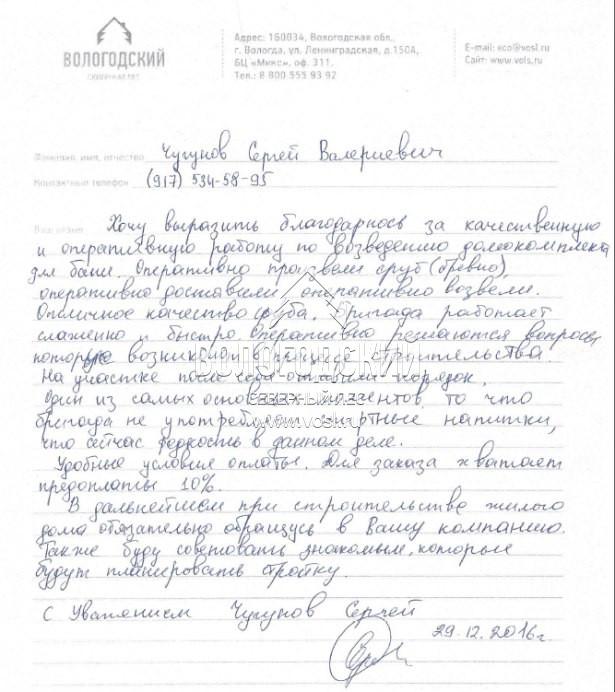 ВОЛОГОДСКИЙ
СЕВЕРНЫЙ ЛЕС
Адрес: 160034, Вологодская обл.,
г. Вологда, ул. Ленинградская, д.150А,
БЦ «Микс», оф. 311.
Тел.: 8 800 555 93 92
E-mail: eco@vosl.ru
Сайт: www.vols.ru
Фамилия, имя, отчество Чугунов Сергей Валериевич
Контактный телефон (917) 534-58-95
Ваш отзыв Хочу выразить благодарнось за качественную
и оперативную работу по возведению домокомплекта
для бани. Оперативно произвели сруб (бревно),
оперативно доставили, оперативно возвели.
Отличное качество сруба. Бригада работает
слаженно и быстро. Оперативно решаются вопросы
которые возникали в процессе строительства.
На участке после себя оставили порядок.
Один из самых основных моментов, то что
бригада не употребляет спиртные напитки,
что сейчас редкость в данном деле.
Удобные условия оплаты. Для заказа хватает
предоплаты 10%.
В дальнейшем при строительстве жилого
дома обязательно обращусь в Вашу компанию.
Также буду советовать знакомым, которые
будут планировать стройку.
С Уважением Чугунов Сергей
29.12.2016г.
ВОЛОГОДСКИЙ
СЕВЕРНЫЙ ЛЕС
www.vosl.ru